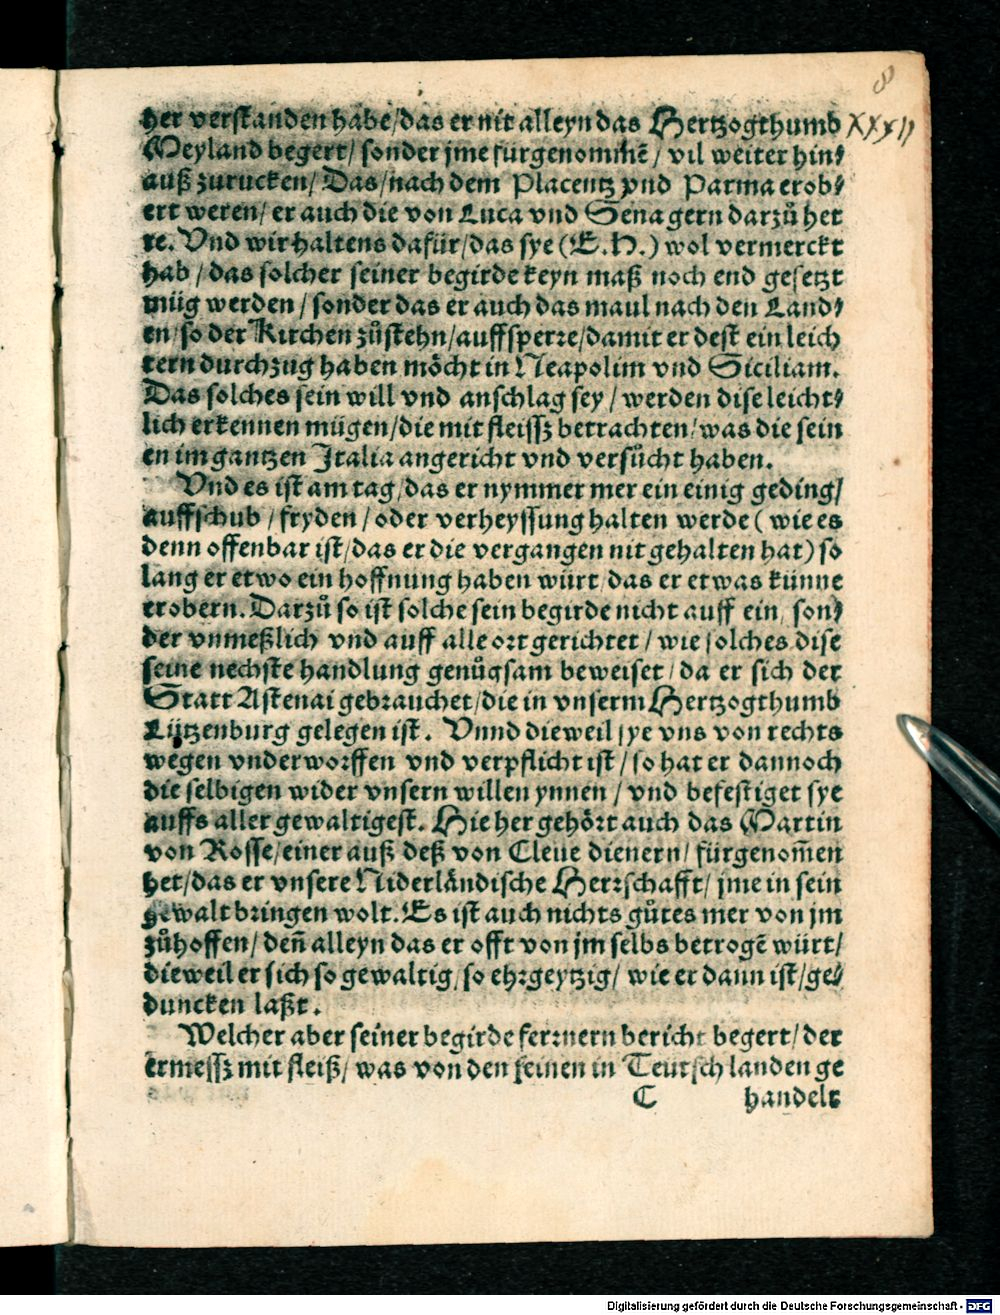 8
her verstanden habe/das er nit alleyn das Hertzogthumb XXXII
Meyland begert/ sonder jme furgenommē/ vil weiter hin⸗
auß zurucken/ Das/nach dem Placentz vnd Parma erob⸗
ert weren/ er auch die von Luca vnd Sena gern darzů het
te. Vnd wir haltens dafür/das sye (E.H.) wol vermerckt
hab/das solcher seiner begirde keyn maß noch end gesetzt
müg werden/ sonder das er auch das maul nach den Land⸗
en/so der Kirchen zůstehn/auffsperre/damit er dest ein leich
tern durchzug haben möcht in Neapolim vnd Siciliam.
Das solches sein will vnd anschlag sey/ werden dise leicht⸗
lich erkennen mügen/die mit fleissz betrachten/was die sein
en im gantzen Italia angericht vnd versůcht haben.
Vnd es ist am tag/das er nymmer mer ein einig geding/
auffschub/fryden/oder verheyssung halten werde (wie es
denn offenbar ist/das er die vergangen nit gehalten hat) so
lang er etwo ein hoffnung haben würt/das er etwas künne
erobern. Darzů so ist solche sein begirde nicht auff ein/ son⸗
der vnmeßlich vnd auff alle ort gerichtet/wie solches dise
seine nechste handlung genůgsam beweiset/da er sich der
Statt Astenai gebrauchet/die in vnserm Hertzogthumb
Lützenburg gelegen ist. Vnnd dieweil sye vns von rechts
wegen vnderworffen vnd verpflicht ist/so hat er dannoch
die selbigen wider vnsern willen ynnen/vnd befestiget sye
auffs aller gewaltigest. Hie her gehört auch das Martin
von Rosse/einer auß deß von Cleue dienern/fürgenom̄en
het/das er vnsere Niderländische Herrschafft/ jme in sein
gewalt bringen wolt. Es ist auch nichts gůtes mer von jm
zůhoffen/den̄ alleyn das er offt von jm selbs betrogē würt/
dieweil er sich so gewaltig/so ehrgeytzig/ wie er dann ist/ge⸗
duncken laßt.
Welcher aber seiner begirde ferrnern bericht begert/der
ermessz mit fleiß/ was von den seinen in Teutschlanden ge
C handelt
Digitalisierung gefördert durch die Deutsche Forschungsgemeinschaft - DFG